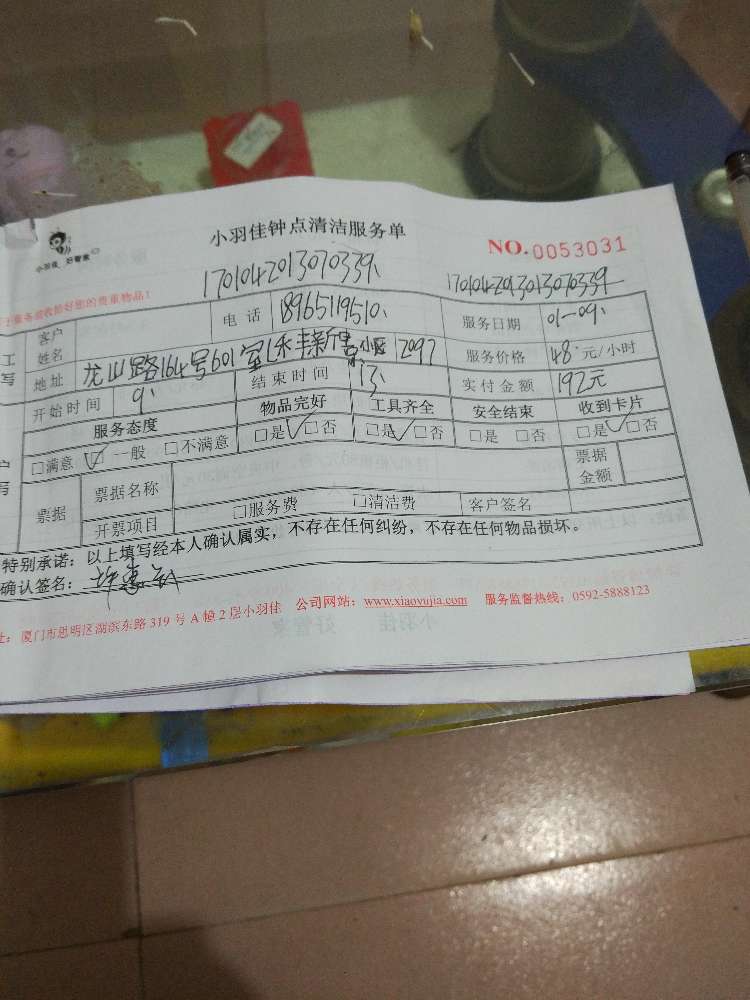 小羽佳 好管家
小羽佳钟点清洁服务单
NO.0053031
1701042013070339
1701042013070339
收给好您的贵重物品！
客户姓名 电话 18965119510 服务日期 01-09
地址 龙山路164号601室 小区 2097 服务价格 48元/小时
开始时间 9 结束时间 13 实付金额 192元
服务态度 物品完好 工具齐全 安全结束 收到卡片
□满意 □一般 □不满意 □是 □否 □是 □否 □是 □否 □是 □否
票据 票据名称 票据金额
开票项目 □服务费 □清洁费 客户签名
特别承诺：以上填写经本人确认属实，不存在任何纠纷，不存在任何物品损坏。
确认签名：
址：厦门市思明区湖滨东路319号A幢2层小羽佳 公司网站：www.xiaoyujia.com 服务监督热线：0592-5888123